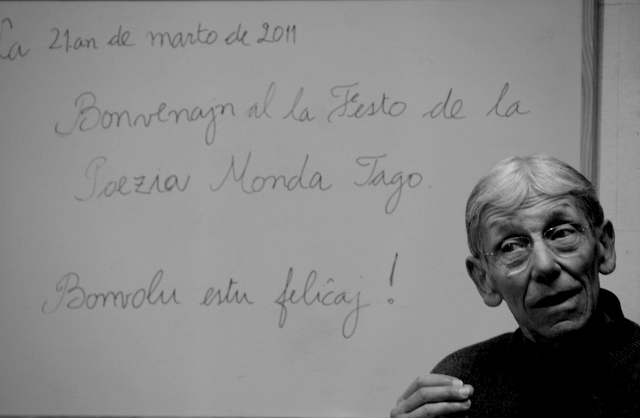 La 21an de marto de 2011
Bonvenajn al la Festo de la
Poezia Monda Tago.
Bonvolu estu feliĉaj !